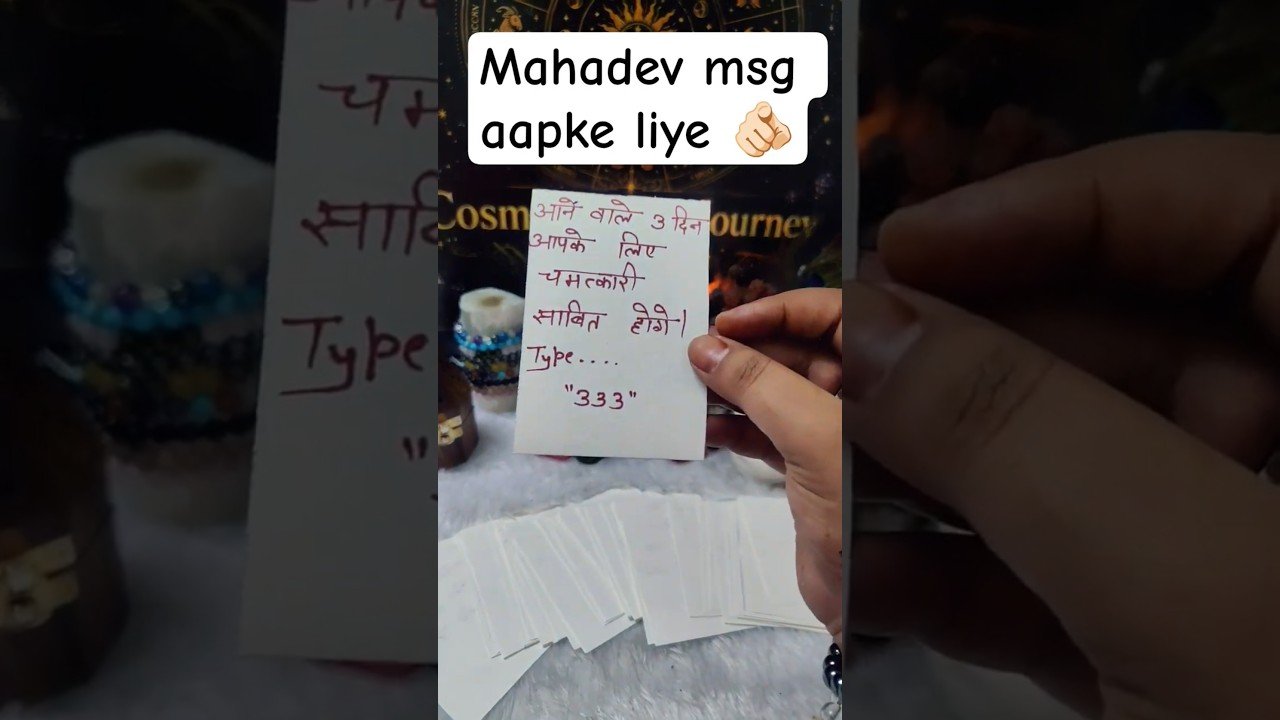 Mahadev msg
aapke liye 👆🏻
आनें वाले 3 दिन
आपके लिए
चमत्कारी
साबित होगे।
Type....
"333"
ourney